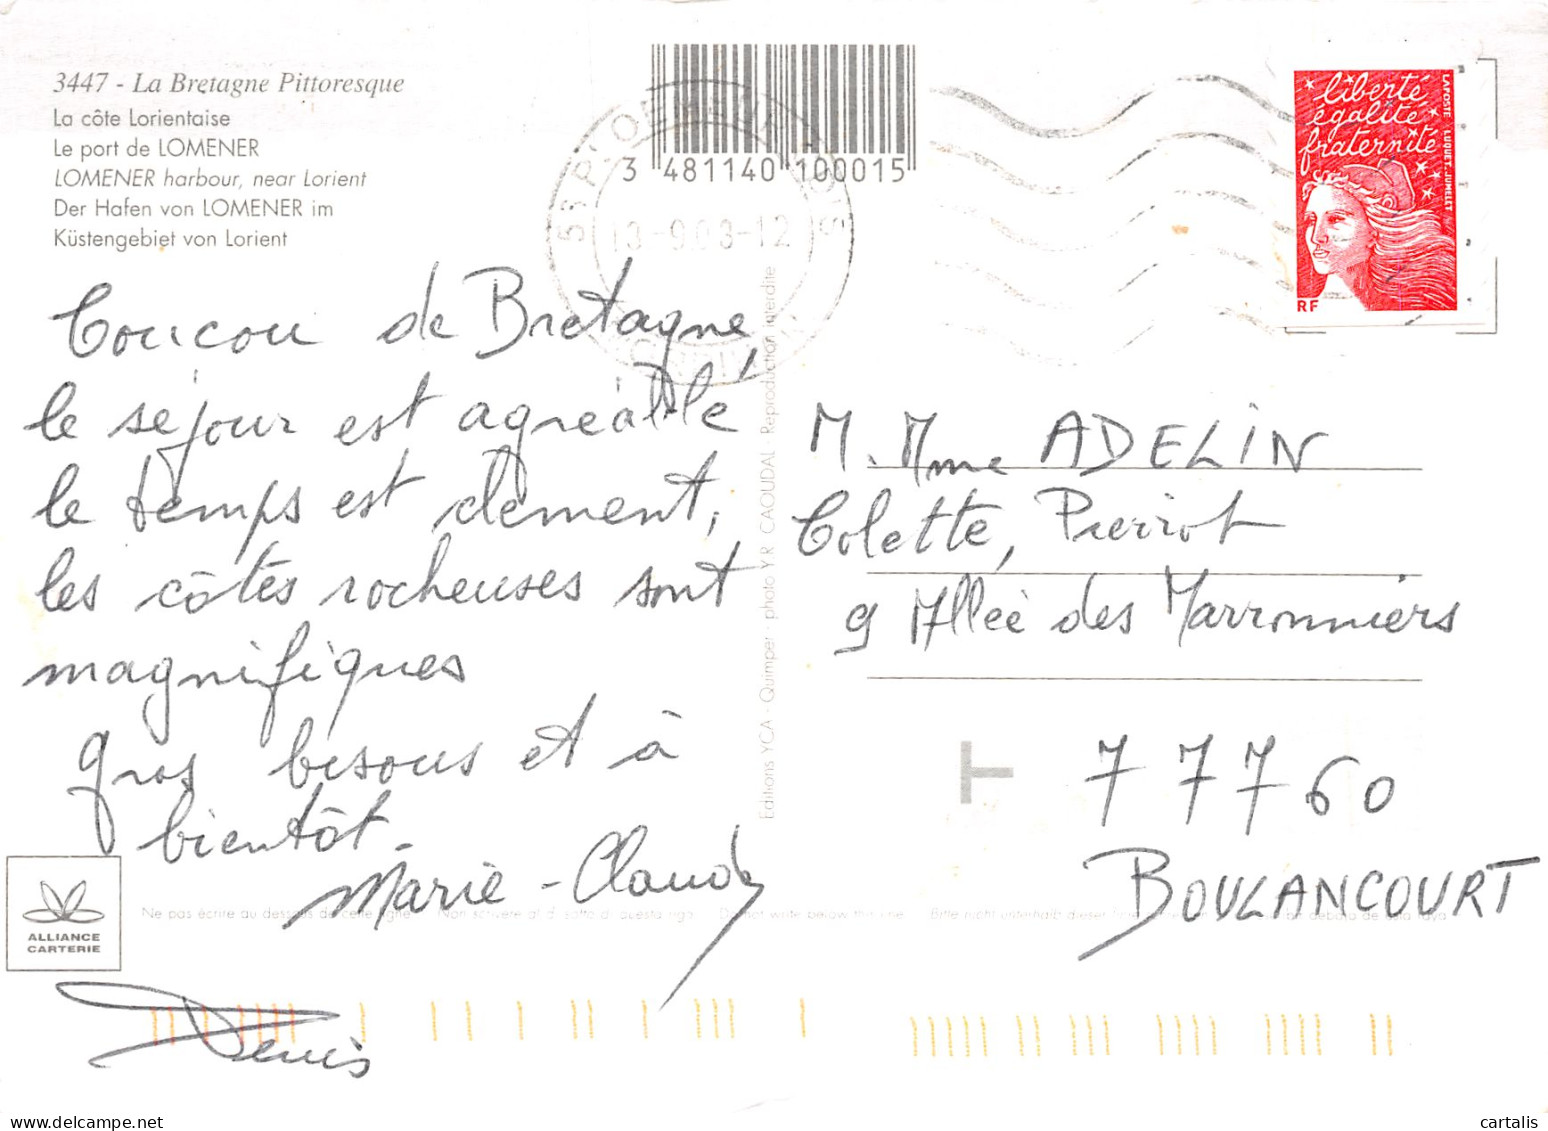 3447 - La Bretagne Pittoresque
La côte Lorientaise
Le port de LOMENER
LOMENER harbour, near Lorient
Der Hafen von LOMENER im
Küstengebiet von Lorient
3 481140 100015
13-9.03-12
liberté
égalité
fraternité
LAPOSTE LUQUET. JUMELET
RF
Coucou de Bretagne
le séjour est agréable
le temps est clement,
les côtes rocheuses sont
magnifiques
gros bisous et à
bientôt.
Marie-Claude
Denis
Editions YCA - Quimper - photo Y.R. CAOUDAL Reproduction interdite
M. Mme ADELIN
Colette, Pierrot
9 Allée des Marronniers
T
77760
BOULANCOURT
ALLIANCE
CARTERIE
Ne pas écrire au dessous de cette ligne Non scrivere al di sotto di questa riga Do not write below this line Bitte nicht unterhalb dieser
cartalis